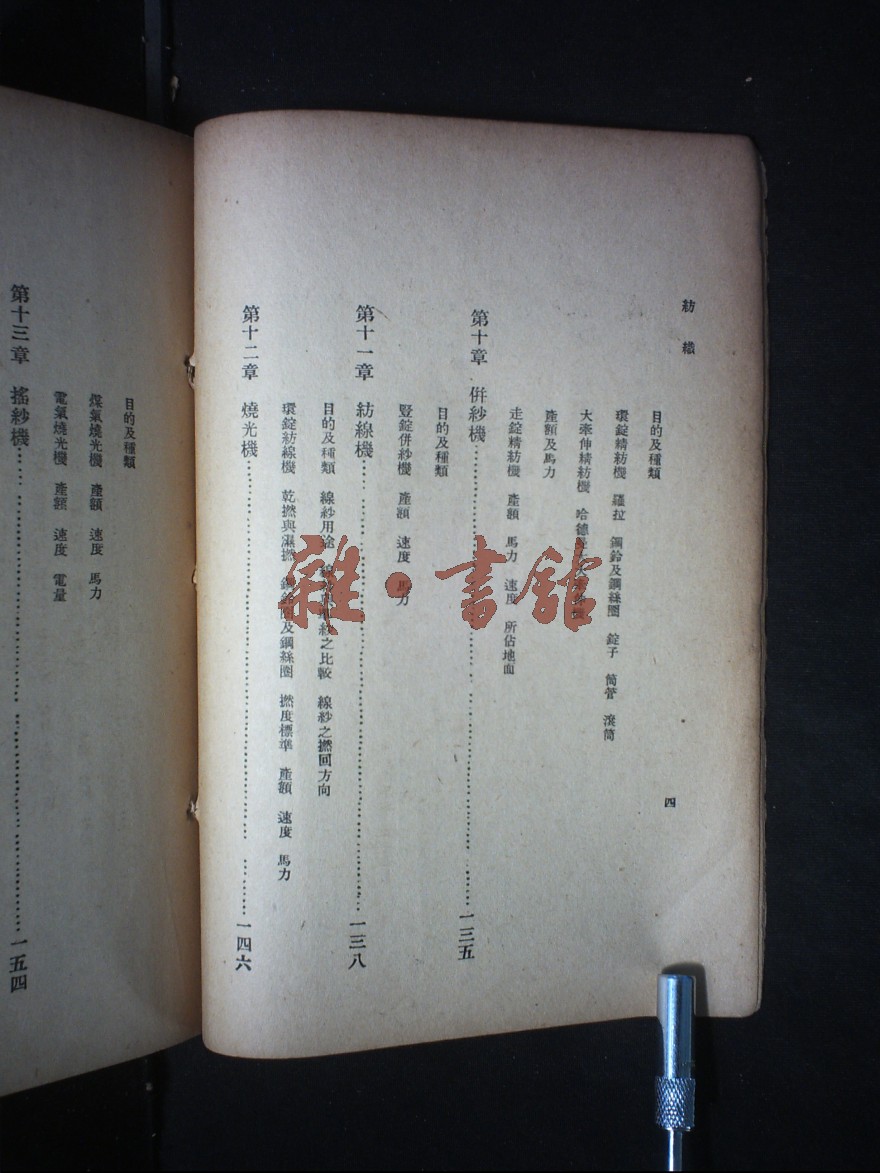 紡織
四
目的及種類
環錠精紡機 羅拉 鋼鈴及鋼絲圈 錠子 筒管 滾筒
大牽伸精紡機 哈德
產額及馬力
走錠精紡機 產額 馬力 速度 所佔地面
第十章 併紗機 一三五
目的及種類
豎錠併紗機 產額 速度 馬力
第十一章 紡線機 一三八
目的及種類 線紗用途 之比較 線紗之撚回方向
環錠紡線機 乾撚與濕撚 鋼鈴圈及鋼絲圈 撚度標準 產額 速度 馬力
第十二章 燒光機 一四六
目的及種類
煤氣燒光機 產額 速度 馬力
電氣燒光機 產額 速度 電量
第十三章 搖紗機 一五四
雜·書館